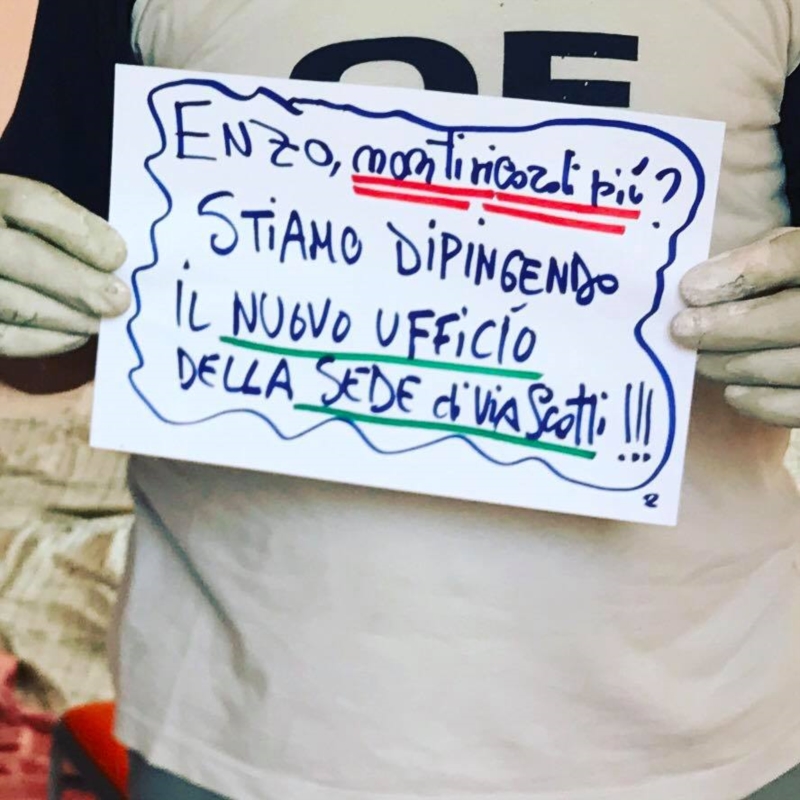 OF
ENZO, non ti ricordi più?
STiAMO DiPiNGENDO
iL NUOVO UFFiCIO
DELLA SEDE di Via Scotti !!!
2